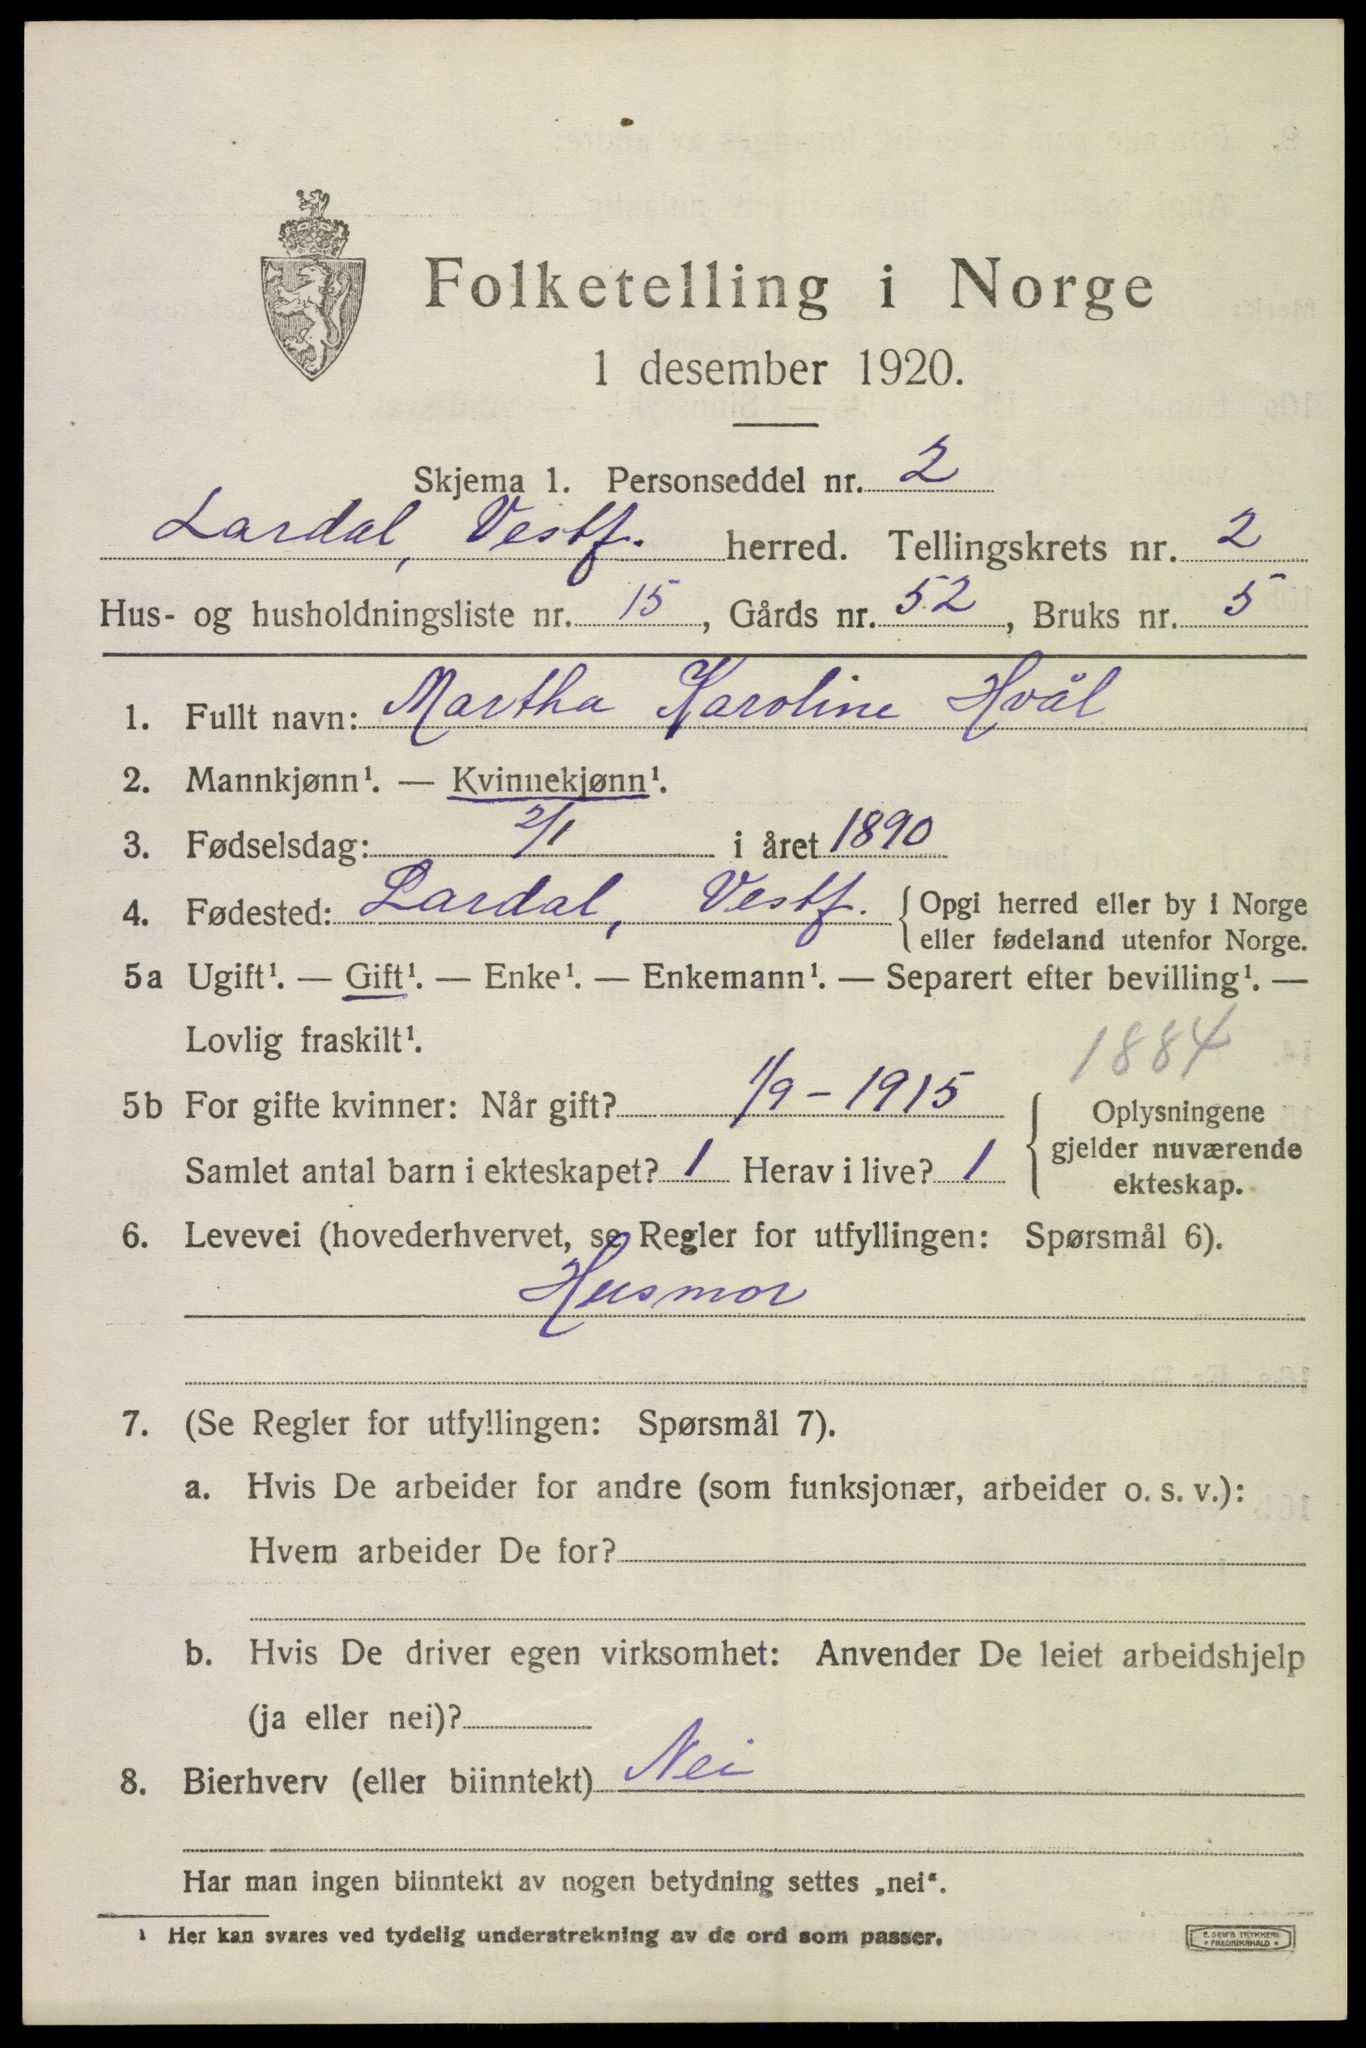 Folketelling i Norge
1 desember 1920.
Skjema 1. Personseddel nr. 2
Lardal, Vestf. herred. Tellingskrets nr. 2
Hus- og husholdningsliste nr. 15, Gårds nr. 52, Bruks nr. 5
1. Fullt navn: Martha Karoline Hvål
2. Mannkjønn¹. — Kvinnekjønn¹.
3. Fødselsdag: 2/1 i året 1890
4. Fødested: Lardal, Vestf. { Opgi herred eller by i Norge
eller fødeland utenfor Norge.
5a Ugift¹. — Gift¹. — Enke¹. — Enkemann¹. — Separert efter bevilling¹. —
Lovlig fraskilt¹.
1884
5b For gifte kvinner: Når gift? 1/9 - 1915
Samlet antal barn i ekteskapet? 1 Herav i live? 1
{ Oplysningene
gjelder nuværende
ekteskap.
6. Levevei (hovederhvervet, se Regler for utfyllingen: Spørsmål 6).
Husmor
7. (Se Regler for utfyllingen: Spørsmål 7).
a. Hvis De arbeider for andre (som funksjonær, arbeider o. s. v.):
Hvem arbeider De for?
b. Hvis De driver egen virksomhet: Anvender De leiet arbeidshjelp
(ja eller nei)?
8. Bierhverv (eller biinntekt) Nei
Har man ingen biinntekt av nogen betydning settes „nei“.
¹ Her kan svares ved tydelig understrekning av de ord som passer.
E. SEM'S TRYKKERI
• FREDRIKSHALD •